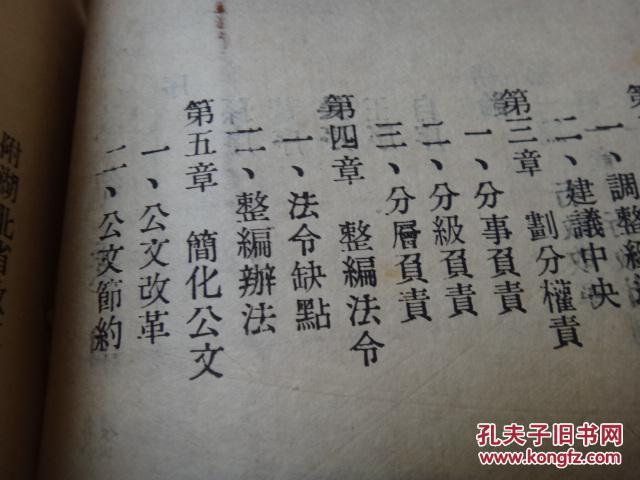 一、調整
二、建議中央
第三章 劃分權責
一、分事負責
二、分級負責
三、分層負責
第四章 整編法令
一、法令缺點
二、整編辦法
第五章 簡化公文
一、公文改革
二、公文節約
附湖北省政
孔夫子旧书网
www.kongfz.com